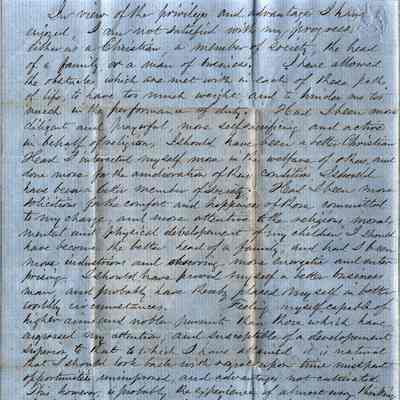 In view of the privileges and advantages I have
enjoyed, I am not satisfied with my progress
either as a Christian a member of Society, the head
of a family or a man of business. I have allowed
the obstacles which are met with in each of these paths
of life, to have too much weight and to hinder me too
much in the performance of duty. Had I been more
diligent and prayerful, more self sacrificing and active
in behalf of religion, I should have been a better Christian
Had I interested myself more in the welfare of others, and
done more for the amelioration of their condition I should
have been a better member of Society. Had I been more
solicitous for the comfort and happiness of those committed
to my charge, and more attentive to the religious, moral,
mental and physical development of my children I should
have become the better head of a family, and had I been
more industrious and more energetic and enter
prising I should have proved myself a better business
man and probably have placed myself in better
worldly circumstances. Feeling myself capable of
higher aims and nobler pursuits than those which have
engrossed my attention, and susceptible of a development
superior to that to which I have attained it is natural
that I should look back with regret upon time misspent
opportunities unimproved, and advantages not cultivated.
This however is probably the experience of almost every thinking